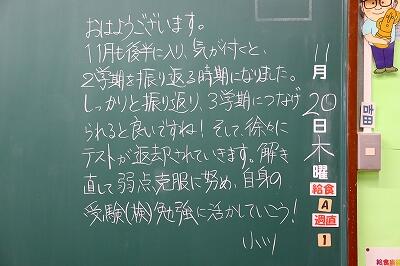 おはようございます。
11月も後半に入り、気が付くと、
2学期を振り返る時期になりました。
しっかりと振り返り、3学期につなげ
られると良いですね！そして、徐々に
テストが返却されていきます。解き
直して弱点克服に努め、自身の
受験(検)勉強に活かしていこう！
小川
11
月
20
日
木
曜
給食
A
週直
1
吉田